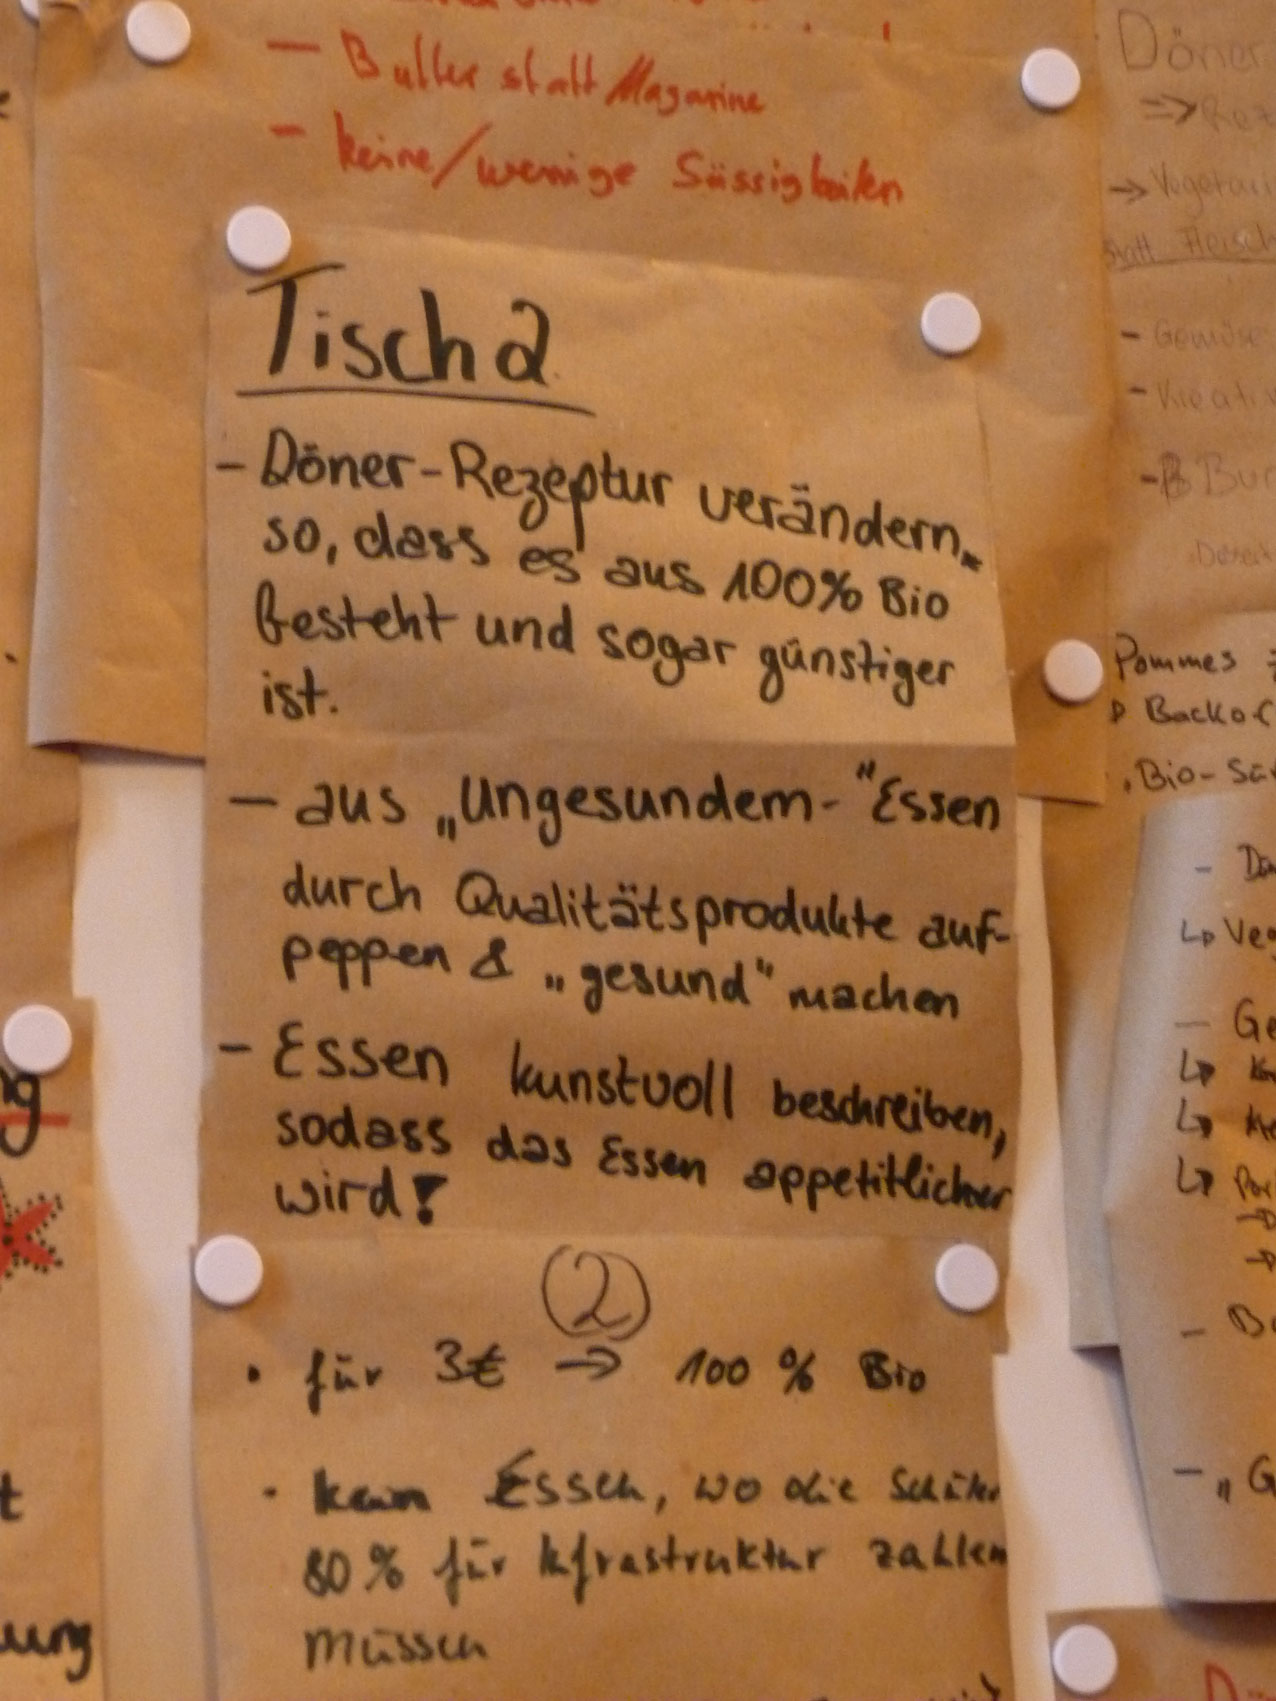 - Butter statt Magarine
- keine/wenige Süssigkeiten
Tisch 2
- Döner-Rezeptur verändern
so, dass es aus 100% Bio
besteht und sogar günstiger
ist.
- aus „Ungesundem-" Essen
durch Qualitätsprodukte auf-
peppen & „gesund" machen
- Essen kunstvoll beschreiben,
sodass das Essen appetitlicher
wird!
2
• für 3€ → 100 % Bio
• kein Essen, wo die Schüler
80% für Infrastruktur zahlen
müssen
Döner
→ Vegetari
statt Fleisch
- Gemüse
- Kreativ
Pommes
Backof
Bio-
Veg
- Ge
- „G
ung